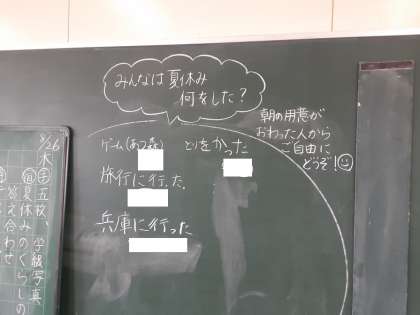 みんなは夏休み
何をした？
朝の用意が
おわった人から
ご自由に
どうぞ！
ゲーム(あつ森)
とりをかった
旅行に行った。
兵庫に行った
8/26
木
五校、学級写真
夏休みのくらしの
答え合わせ